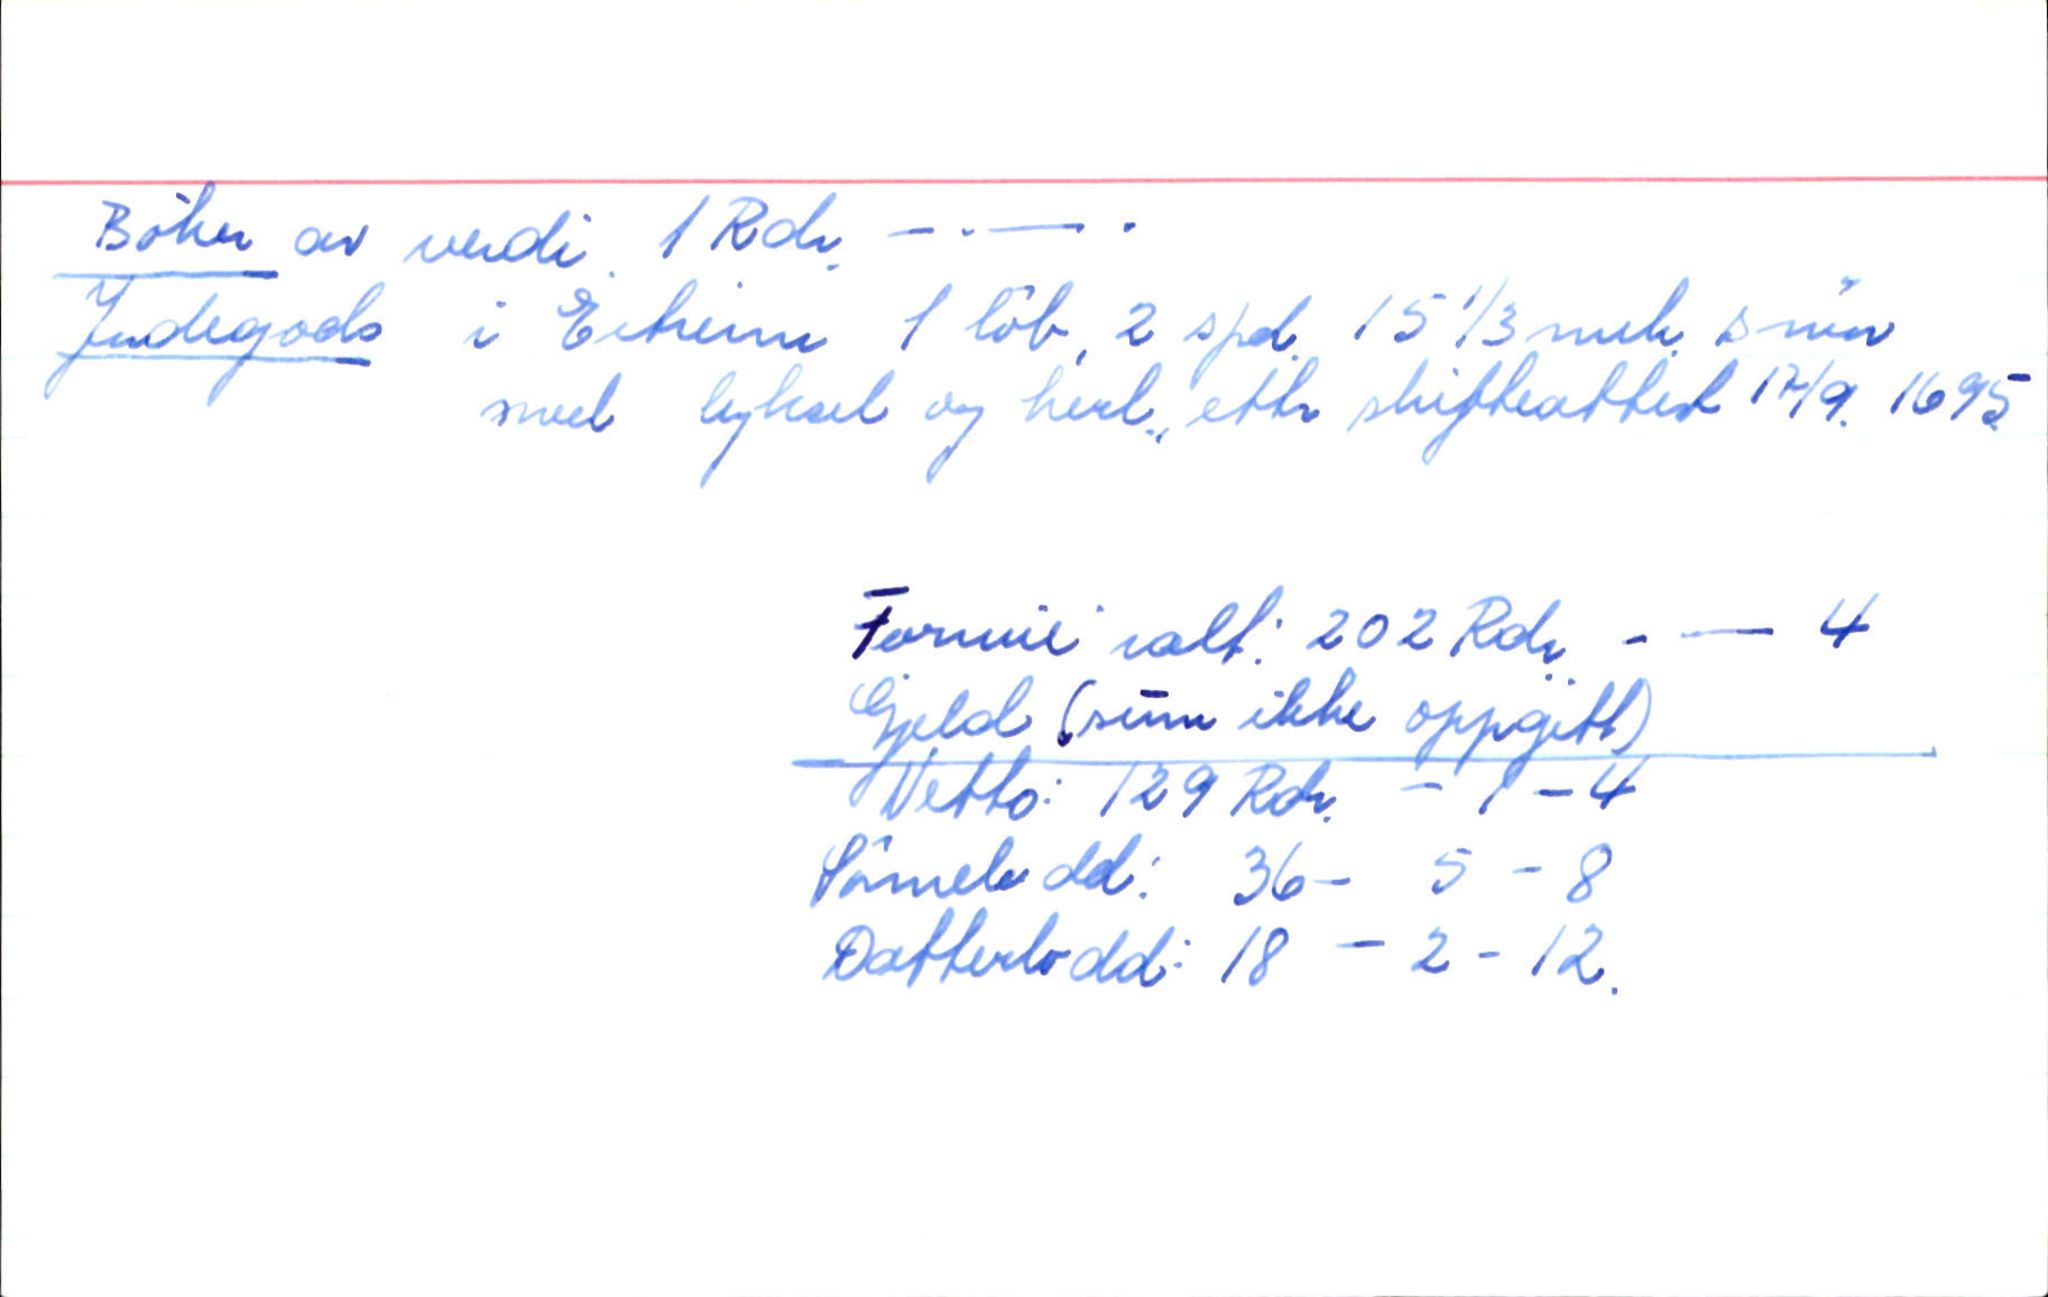 Böker av verdi 1 Rdr. - . — .
Jndegods i Eitheim 1 löb, 2 spd. 15 1/3 mrk. smör
med lyksel og herl., ettr skifteattest 17/9. 1695
Formue ialt: 202 Rdr. - — 4
Gjeld (sum ikke oppgitt)
Netto: 129 Rdr. - 1 - 4
Sönnelodd: 36 - 5 - 8
Datterlodd: 18 - 2 - 12.